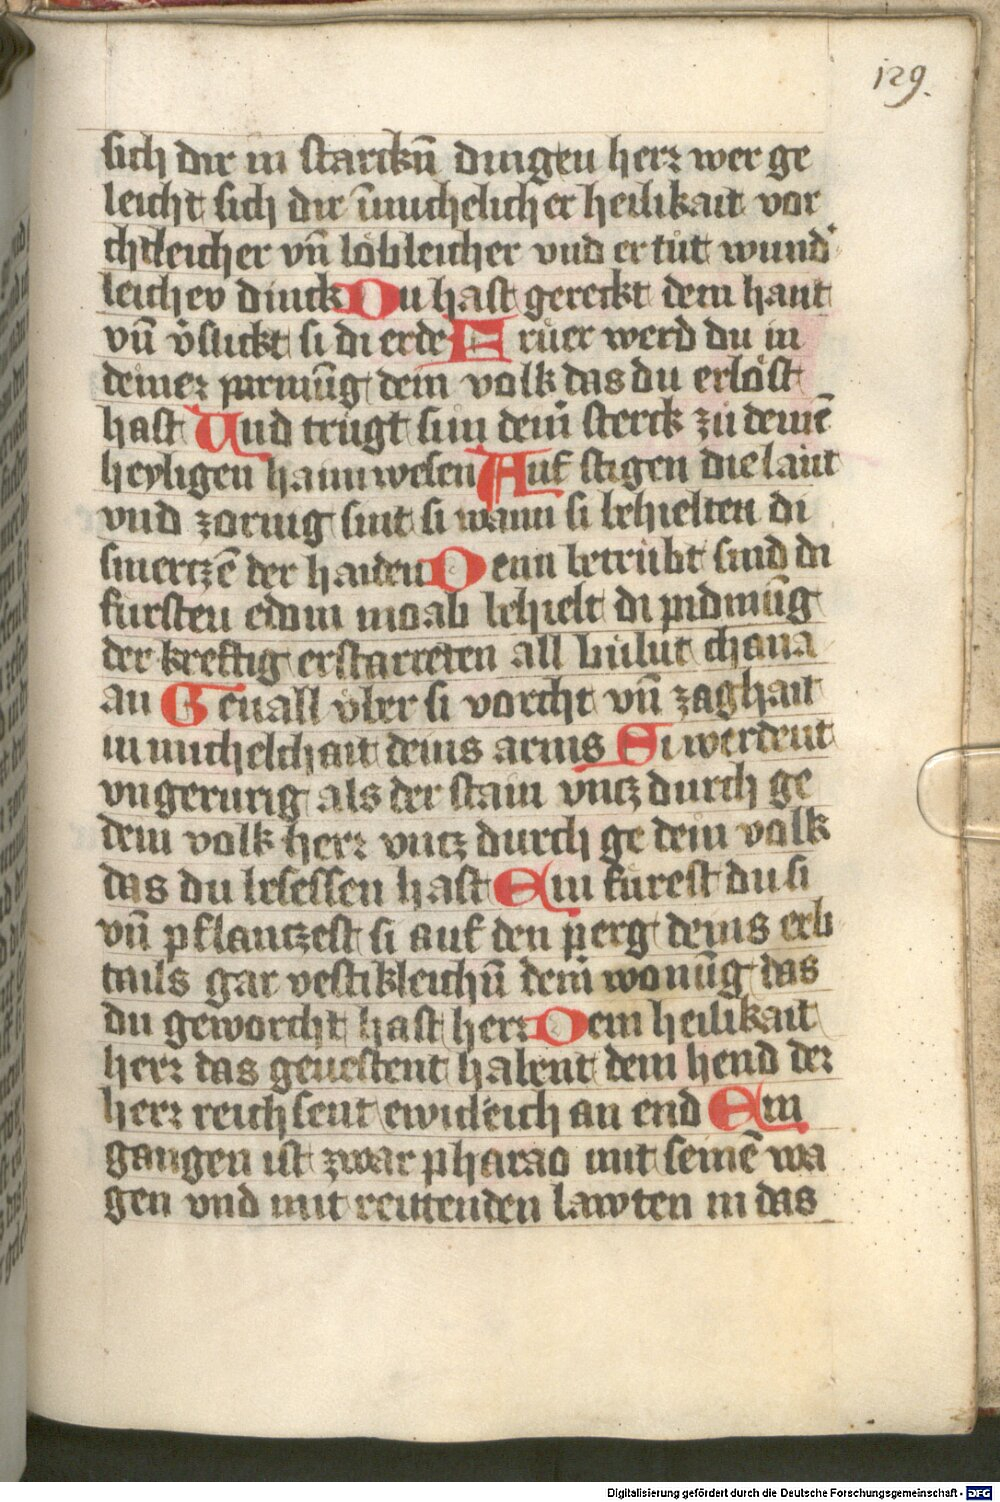 129.
sich dir in starckn̄ dingen herr wer ge
leicht sich dir im̄ichelicher heilikait vor
chtleicher vn̄ löbleicher vnd er tůt wund̾
leichev dinck Du hast gereckt dein hant
vn̄ v̾slickt si di erde E rüer werd du in
deiner parmūg dein volk das du erlöst
hast Und trügt si in deiner sterck zů deinē
heyligen hainwesen Auf stigen die laüt
vnd zornig sint si wann si behielten di
smertzē der haiden Denn betrübt sind di
fürsten edom moab behielt di pidmūg
der kreftig erstarreten all inlüt chana
an Geuall über si vorcht vn̄ zaghait
in michelchait deins arms Si werdent
vngerurig als der stain vntz durch ge
dein volk herr vntz durch ge dein volk
das du besessen hast Ein fürest du si
vn̄ pflantzest si auf den perg deins erb
tails gar vestikleichn̄ deiner wonūg das
du geworcht hast herr Dein heilikait
herr das geuestent habent dein hend der
herr reichsent ewicleich an end Ein
gangen ist zwar pharao mit seinē wa
gen vnd mit reittenden lawten in das
Digitalisierung gefördert durch die Deutsche Forschungsgemeinschaft - DFG